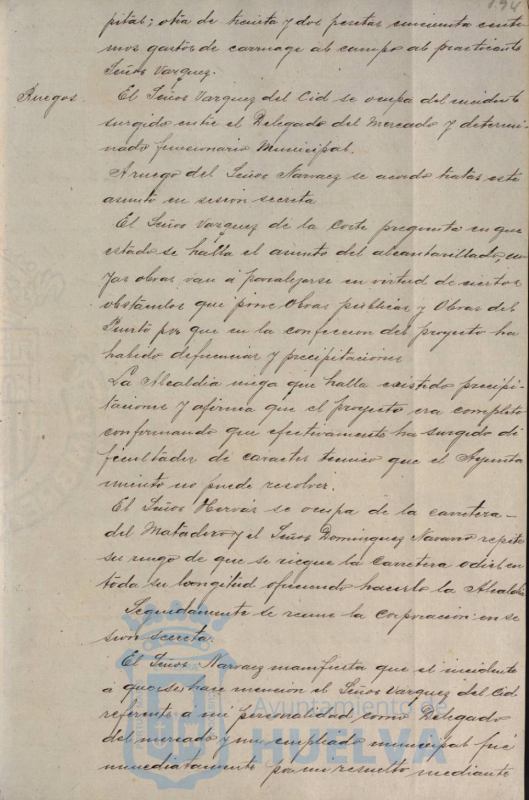 194
pitas; otra de treinta y dos pesetas cincuenta centi
mos gastos de carruage al campo al practicante
Señor Vazquez.
Ruegos. El Señor Vazquez del Cid se ocupa del incidente
surgido entre el Delegado del Mercado y determi
nado funcionario Municipal.
A ruego del Señor Narvaez se acordó tratar este
asunto en sesion secreta
El Señor Vazquez de la Corte pregunta en que
estado se halla el asunto del alcantarillado, cu
yas obras van á paralizarse en virtud de ciertos
obstaculos que pone Obras publicas y Obras del
Puerto por que en la confeccion del proyecto ha
habido deficiencias y precipitaciones
La Alcaldia niega que halla existido precipi-
taciones y afirma que el proyecto era completo
conformando que efectivamente ha surgido di
ficultades de caracter tecnico que el Ayunta
miento no puede resolver.
El Señor Hervás se ocupa de la carretera
del Matadero y el Señor Dominguez Navarro repite
su ruego de que se riegue la Carretera Odiel en
toda su longitud ofreciendo hacerlo la Alcaldia
Seguidamente se reune la Corporacion en se
sion secreta.
El Señor Narvaez manifiesta que el incidente
á que se hace mencion el Señor Vazquez del Cid
referente á mi personalidad como Delegado
del mercado y un empleado municipal fué
inmediatamente por mi resuelto mediante
Ayuntamiento de
HUELVA